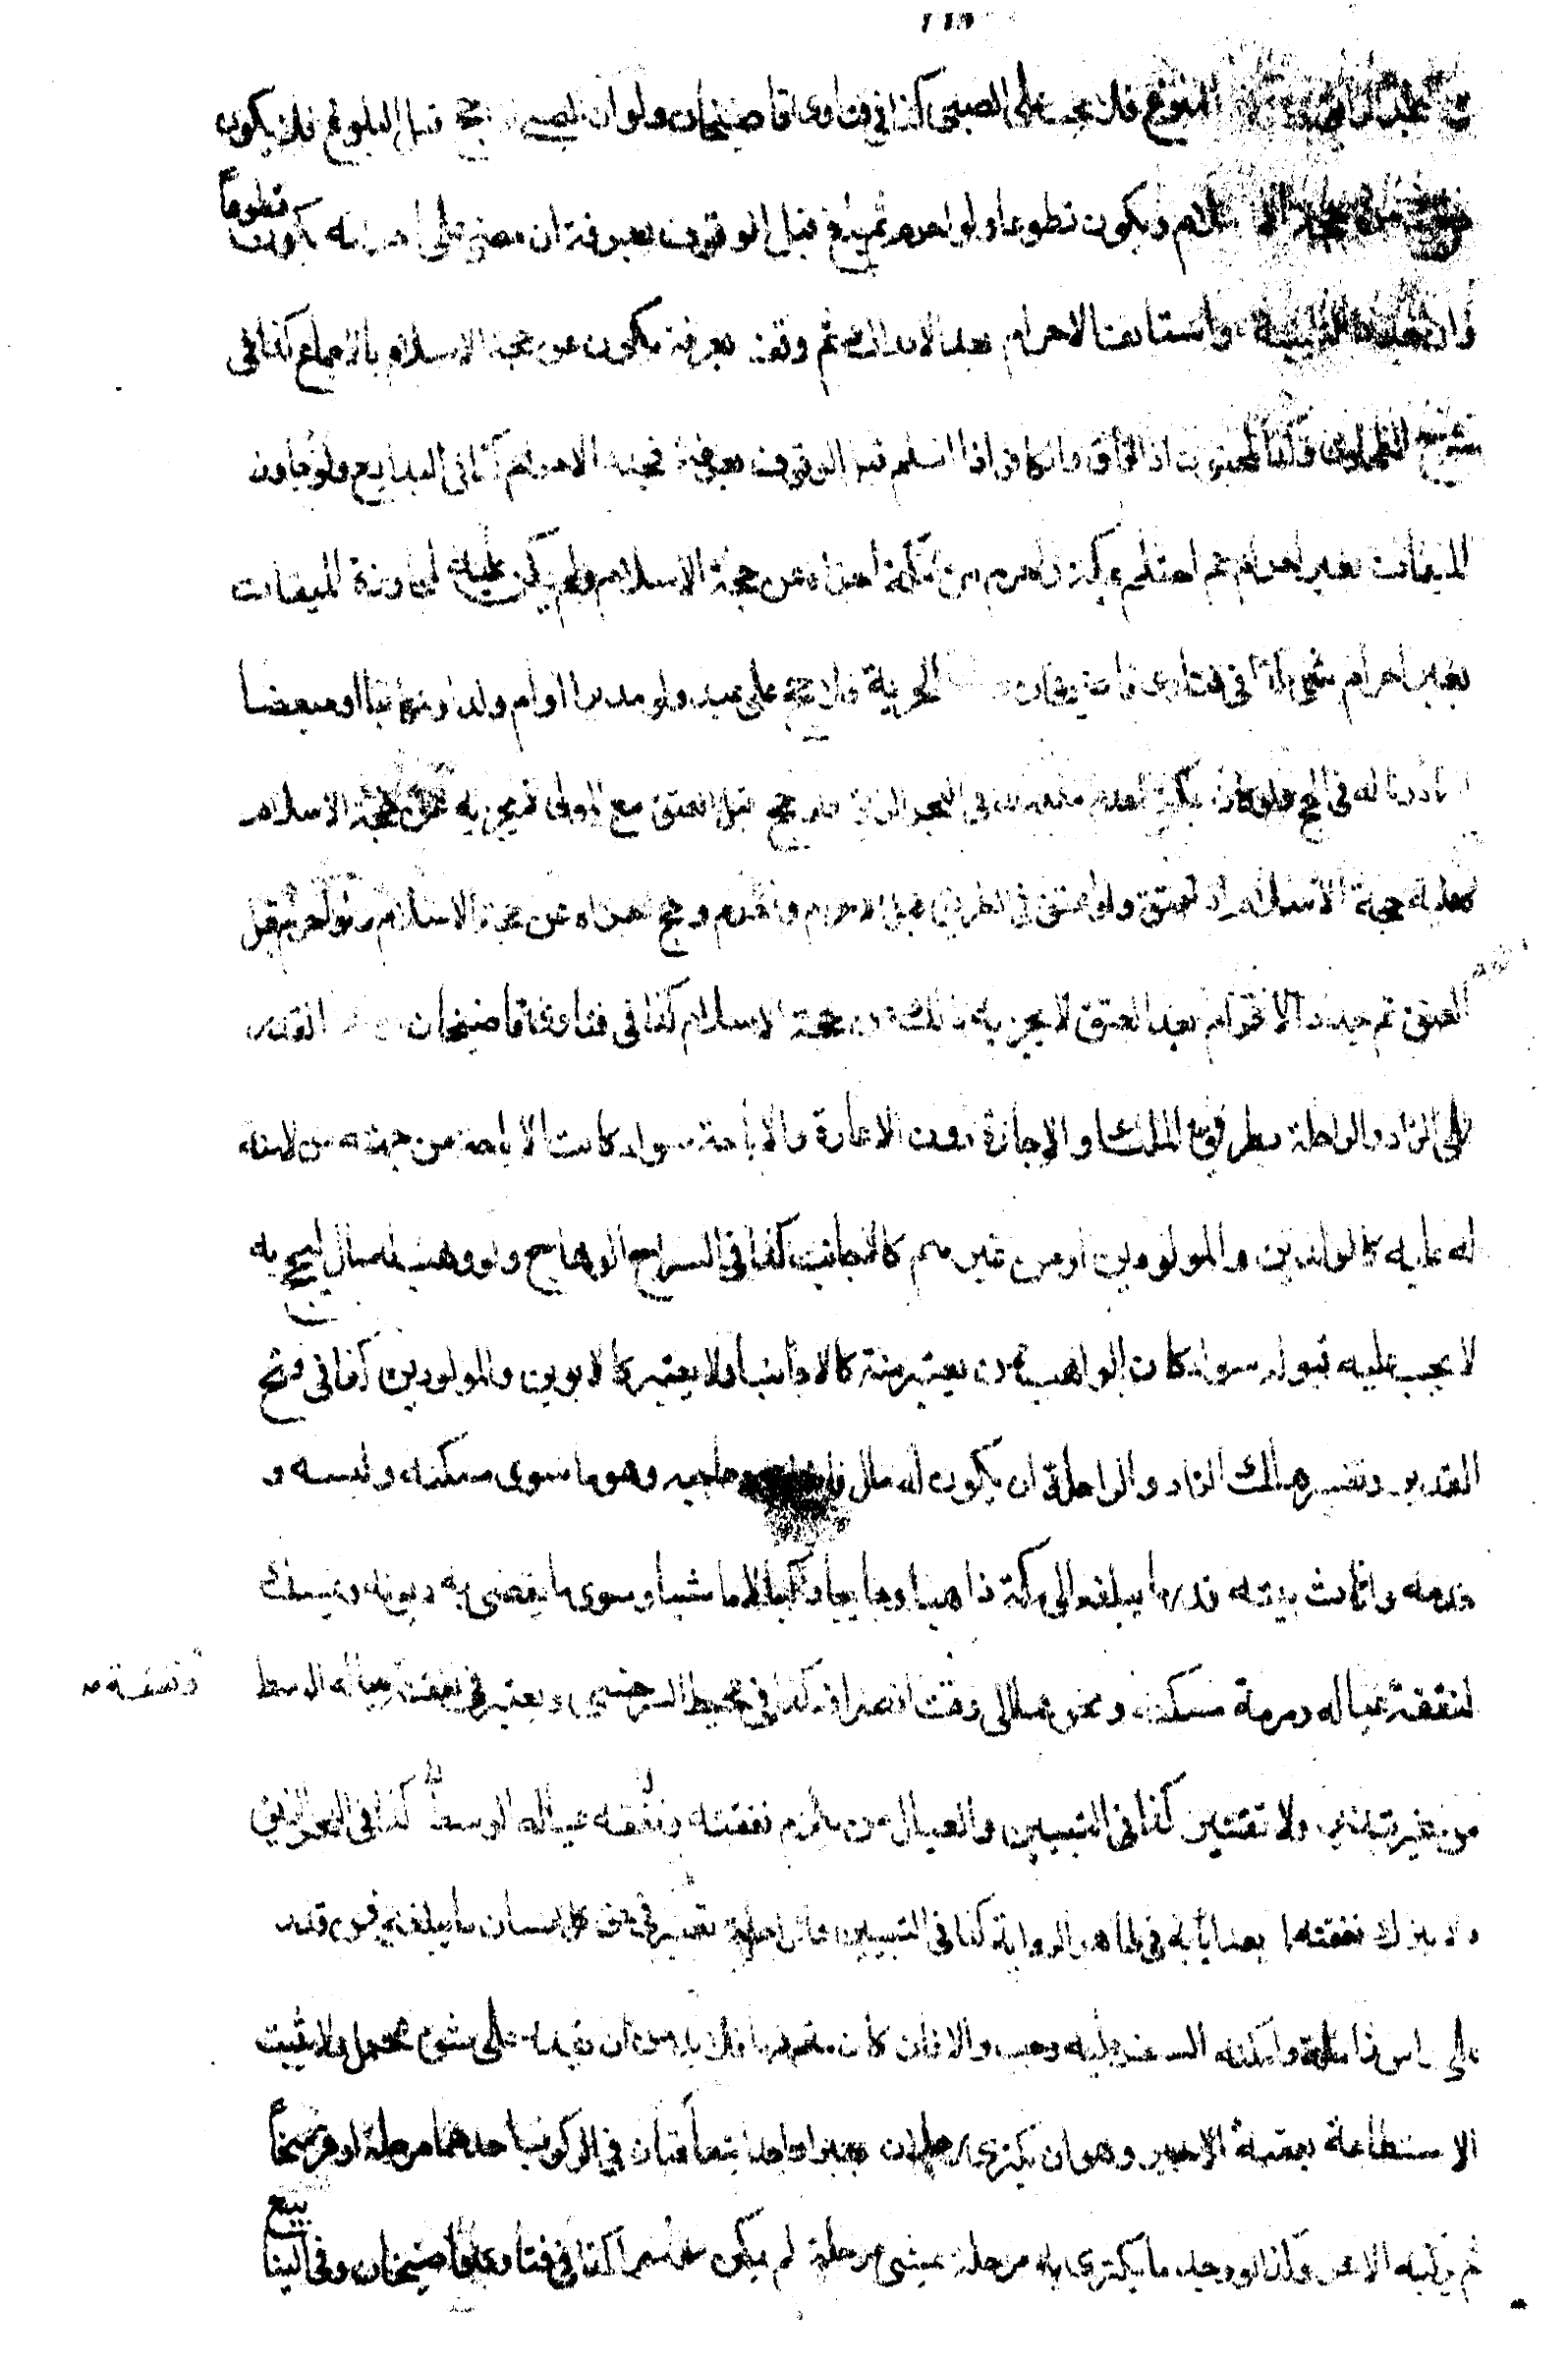 البلوغ فلا يجب على الصبي كذا في فتاوى قاضيخان ولو ان الصبي حج قبل البلوغ فلا يكون
الاسلام ويكون تطوعا ولو احرم ثم بلغ قبل الوقوف بعرفة ان مضى على احرامه يكون تطوعاً
واستأنف الاحرام بعد الادراك ثم وقف بعرفة يكون عن حجة الاسلام بالاجماع كذا في
شرح الطحاوى وكذا المجنون اذا افاق والكافر اذا اسلم قبل الوقوف بعرفة فجدد الاحرام كذا في البدايع ولو جاوز
الميقات بغير احرام ثم احتلم بمكة واحرم من مكة اجزاه عن حجة الاسلام ولم يكن عليه لمجاوزة الميقات
بغير احرام شئ كذا في فتاوى قاضيخان الحرية فلا حج على عبد ولو مدبرا او ام ولد او مكاتبا او مبعضا
ماذونا له في الحج ولو كان بمكة لعدم ملكه كذا في البحر الرائق ولو حج قبل العتق مع المولى لايجزيه عن حجة الاسلام
وعليه حجة الاسلام اذا عتق ولو عتق في الطريق قبل الاحرام واحرم وحج اجزاه عن حجة الاسلام ولو احرم قبل
العتق ثم جدد الاحرام بعد العتق لا يجزيه ذلك عن حجة الاسلام كذا في فتاوى قاضيخان القدرة
على الزاد والراحلة بطريق الملك او الاجارة دون الاعارة والاباحة سواء كانت الاباحة من جهة من لا منة
له عليه كالوالدين والمولودين او من غيرهم كالاجانب كذا في السراج الوهاج ولو وهب له مال ليحج به
لا يجب عليه قبوله سواء كان الواهب ممن يعتبر منته كالاجانب او لا يعتبر كالابوين والمولودين كذا في فتح
القدير وتفسير ملك الزاد والراحلة ان يكون له مال فاضل عن حاجته وهو ما سوى مسكنه ولبسه و
خدمه واثاث بيته قدر ما يبلغه الى مكة ذاهبا وجائيا راكبا لا ماشيا وسوى ما يقضى به ديونه ويمسك
لنفقة عياله ومرمة مسكنه ونحوه الى وقت انصرافه كذا في محيط السرخسي ويعتبر في نفقته ونفقة عياله الوسط
من غير تبذير ولا تقتير كذا في التبيين والعيال من يلزم نفقته ونفقة عياله الوسط كذا في البحر الرائق
ولا يترك نفقته لما بعد ايابه في ظاهر الرواية كذا في التبيين والراحلة تعتبر في حق كل انسان ما يبلغه فمن قدر
على راس زاملة وامكنه السفر عليه وجب والا فان كان مترفها فلا بد من ان يقدر على شق محمل ولا يثبت
الاستطاعة بعقبة الاجير وهو ان يكترى رجلان بعيرا واحدا يتعاقبان في الركوب احدهما مرحلة او فرسخاً
ثم يركبه الآخر وكذا لو وجد ما يكترى به مرحلة ويمشي مرحلة لم يكن موسرا كذا في فتاوى قاضيخان وفي الينابيع